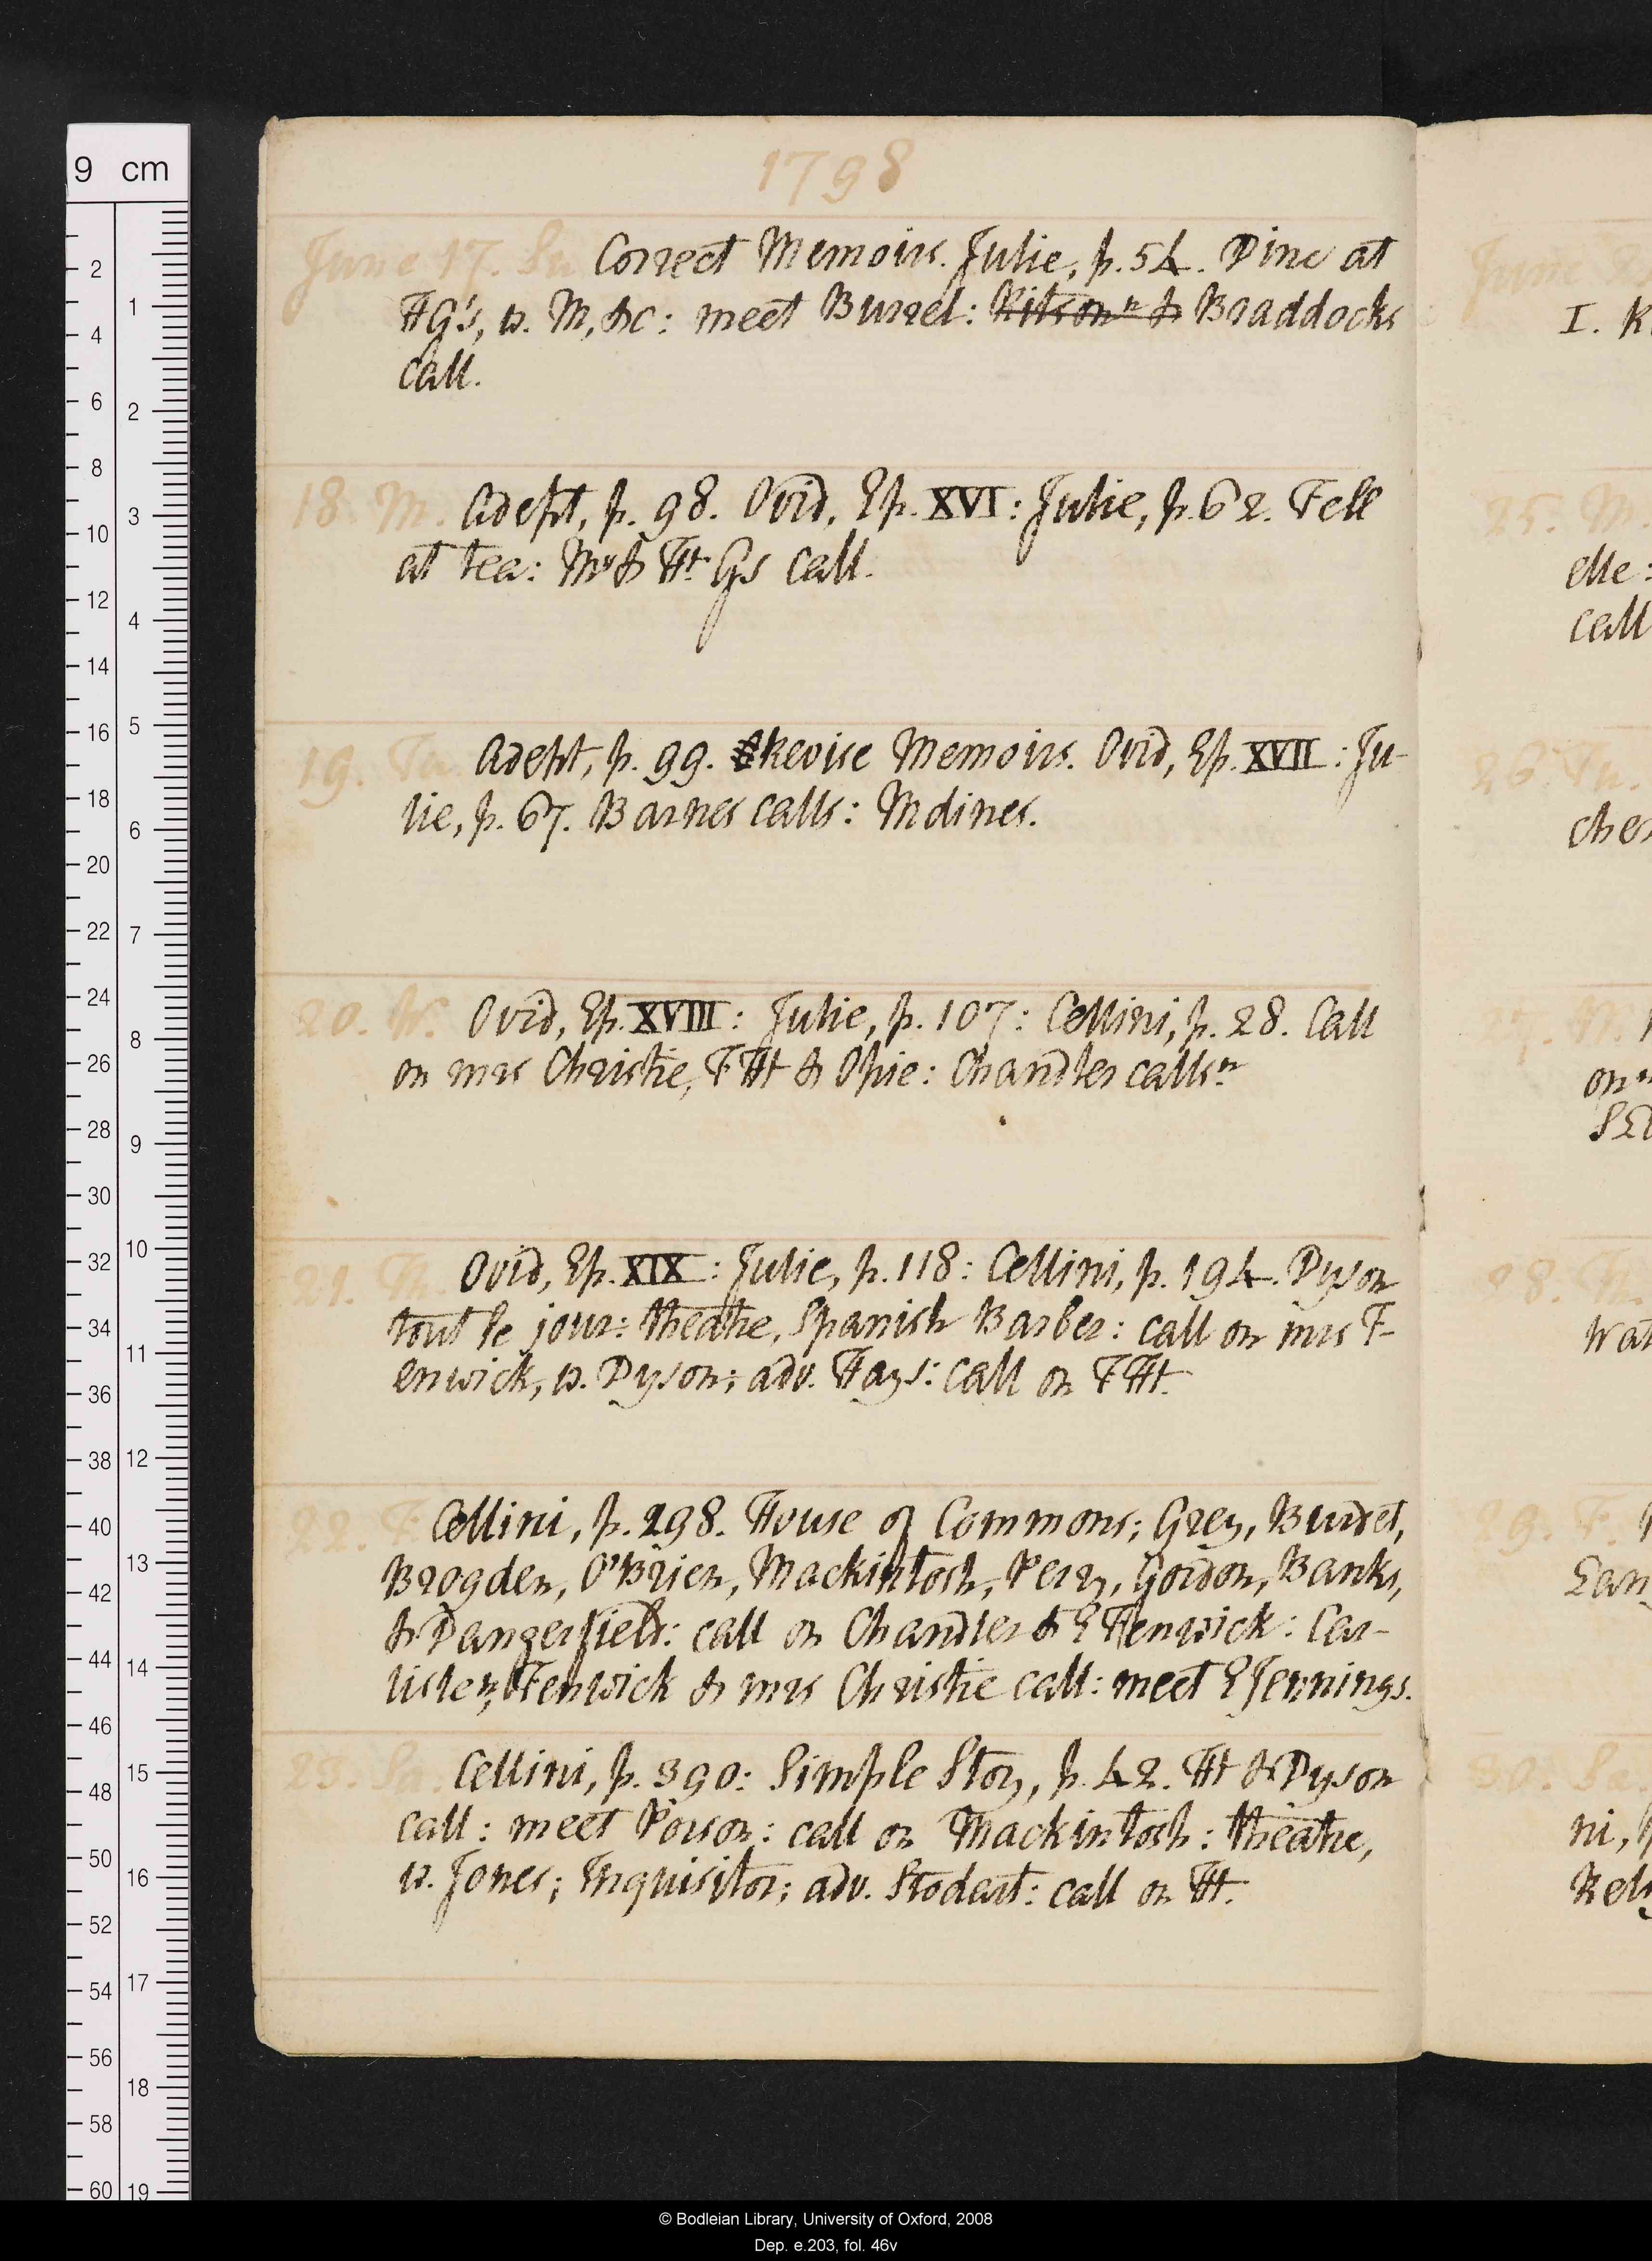 1798
June 17. Su. Correct Memoirs. Julie, p. 54. Dine at
HG's, w. M, &c: meet Burrel: Ritson n & Braddocks
call.
18. M. Adept, p. 98. Ovid, Ep. XVI: Julie, p. 62. Fell
at tea: M & Ht Gs call.
19. Tu. Adept, p. 99. Revise Memoirs. Ovid, Ep. XVII: Ju-
lie, p. 67. Barnes calls: M dines.
20. W. Ovid, Ep. XVIII: Julie, p. 107: Cellini, p. 28. Call
on mrs Christie, F, Ht & Opie: Chandler calls n
21. Th. Ovid, Ep. XIX: Julie, p. 118: Cellini, p. 194. Dyson
tout le jour: theatre, Spanish Barber: call on mrs F-
enwick, w. Dyson; adv. Hays: call on F Ht.
22. F. Cellini, p. 298. House of Commons; Grey, Burdet,
Brogden, O'Brien, Mackintosh, Perry, Gordon, Banks,
& Dangerfield: call on Chandler & E Fenwick: Car-
lisle n, Fenwick & mrs Christie call: meet E Jennings.
23. Sa. Cellini, p. 390: Simple Story, p. 42. Ht & Dyson
call: meet Porson: call on Mackintosh: theatre,
w. Jones; Inquisitor; adv. Stodart: call on Ht.
June
I. K
25. M.
elle:
call
26. Tu.
ches
on n
28. Th.
Wat
29. F.
Lan
30. Sa
ni,
9 cm
2
4
6
8
10
12
14
16
18
20
22
24
26
28
30
32
34
36
38
40
42
44
46
48
50
52
54
56
58
60
1
2
3
4
5
6
7
8
9
10
11
12
13
14
15
16
17
18
19
© Bodleian Library, University of Oxford, 2008
Dep. e.203, fol. 46v